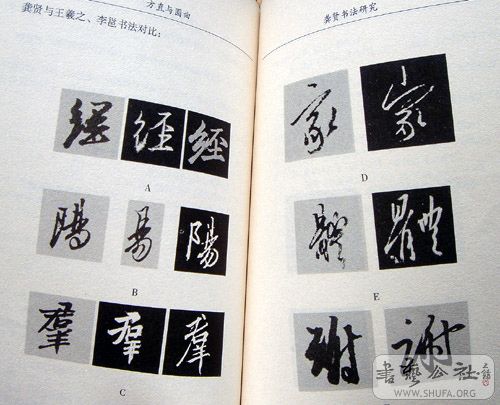 方直与圆曲
龚贤与王羲之、李邕书法对比:
經 經 經
A
陽 易 陽
B
羣 羣 羣
C
龚贤书法研究
家 家
D
體 體
E
謝 謝
書藝公社
WWW.SHUFA.ORG